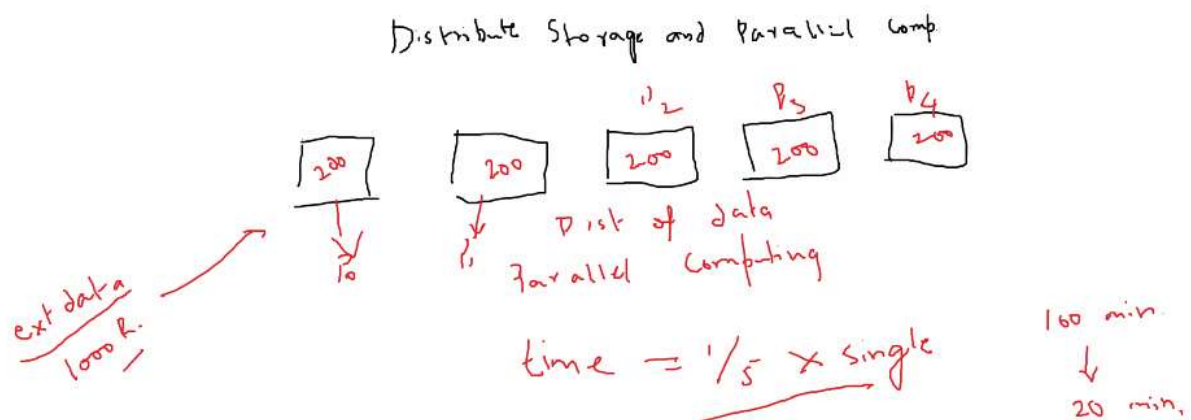 Distribute Storage and Parallel Comp
P2 P3 P4
200 200 200 200 200
P0 P1 Dist of data
Parallel Computing
ext data
1000 R.
time = 1/5 × single
100 min.
↓
20 min.